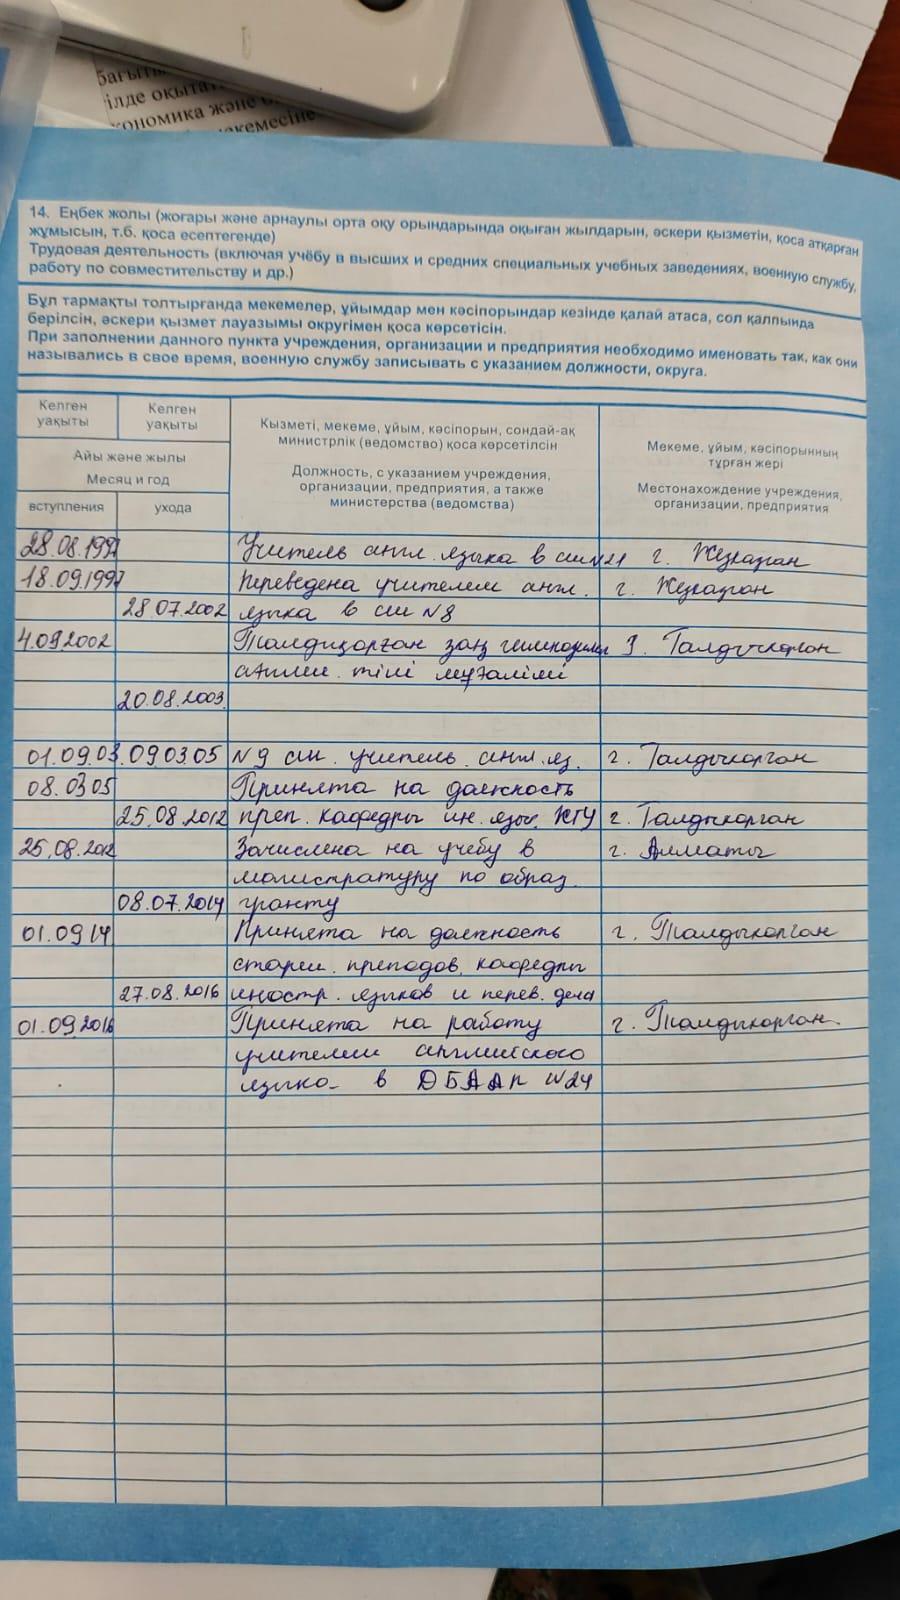 бағыты
ілде оқыта
кономика және
кемесіне
14. Еңбек жолы (жоғары және арнаулы орта оқу орындарында оқыған жылдарын, әскери қызметін, қоса атқарған
жұмысын, т.б. қоса есептегенде)
Трудовая деятельность (включая учёбу в высших и средних специальных учебных заведениях, военную службу,
работу по совместительству и др.)
Бұл тармақты толтырғанда мекемелер, ұйымдар мен кәсіпорындар кезінде қалай атаса, сол қалпында
берілсін, әскери қызмет лауазымы округімен қоса көрсетісін.
При заполнении данного пункта учреждения, организации и предприятия необходимо именовать так, как они
назывались в свое время, военную службу записывать с указанием должности, округа.
Келген уақыты
Келген уақыты
Айы және жылы
Месяц и год
вступления
ухода
Кызметі, мекеме, ұйым, кәсіпорын, сондай-ақ
министрлік (ведомство) қоса көрсетілсін
Должность, с указанием учреждения,
организации, предприятия, а также
министерства (ведомства)
Мекеме, ұйым, кәсіпорынның
тұрған жері
Местонахождение учреждения,
организации, предприятия
28.08.1997 Учитель англ. языка в сш №21 г. Жезказган
18.09.1997 Переведена учителем англ. г. Жезказган
28.07.2002 языка в сш №8
4.09.2002 Талдықорған заң г. Талдыкорган
ағылш. тілі мұғалімі
20.08.2003.
01.09.03. 09.03.05 №9 сш. учитель. англ. яз. г. Талдыкорган
08.03.05 Принята на должность
25.08.2012 преп. кафедры ин. язы. ЖГУ г. Талдыкорган
25.08.2012 Зачислена на учебу в г. Алматы
магистратуру по образ.
08.07.2014 гранту
01.09.14 Принята на должность г. Талдыкорган
старш. преподов. кафедры
27.08.2016 иностр. языков и перев. дела
01.09.2016 Принята на работу г. Талдыкорган.
учителем английского
языка в ДБААП №24